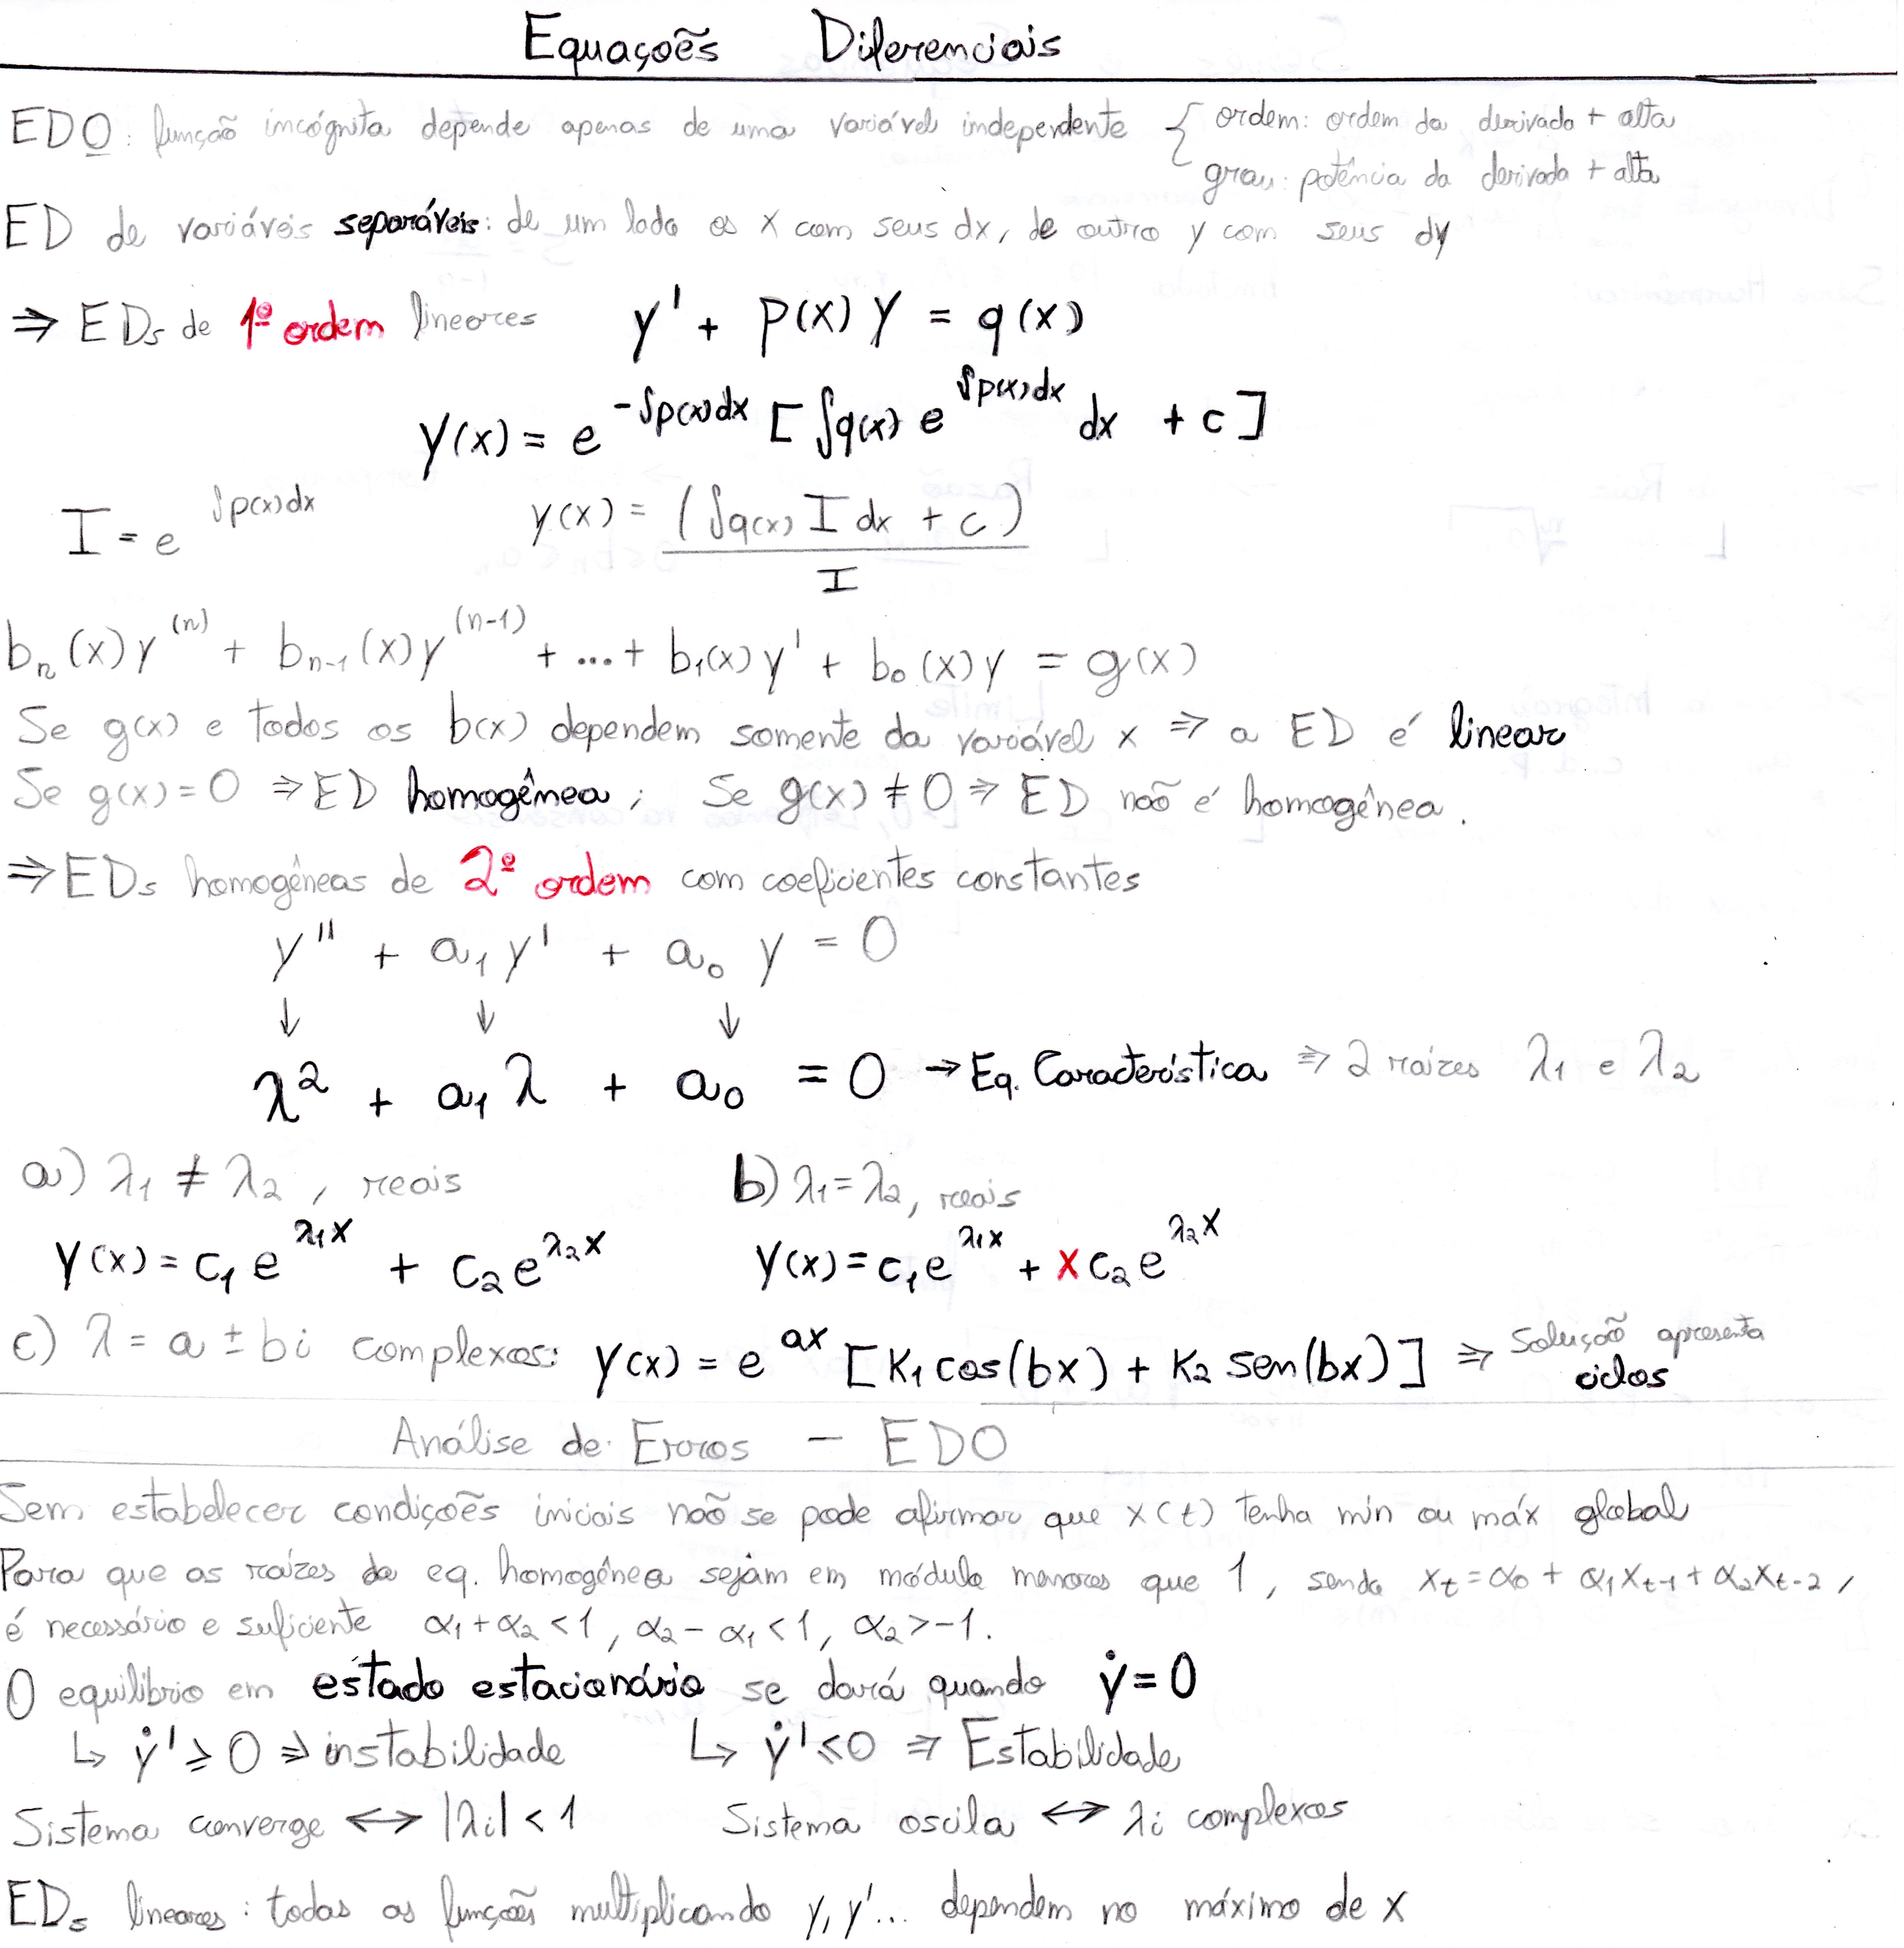 Equações Diferenciais
EDO: função incógnita depende apenas de uma variável independente { ordem: ordem da derivada + alta
grau: potência da derivada + alta
ED de variáveis separáveis: de um lado os x com seus dx, de outro y com seus dy
⇒ EDs de 1ª ordem lineares y' + p(x) y = q(x)
y(x) = e^{-∫p(x)dx} [∫q(x) e^{∫p(x)dx} dx + c]
I = e^{∫p(x)dx} y(x) = (∫q(x) I dx + c) / I
bₙ(x)y⁽ⁿ⁾ + bₙ₋₁(x)y⁽ⁿ⁻¹⁾ + ... + b₁(x)y' + b₀(x)y = g(x)
Se g(x) e todos os b(x) dependem somente da variável x ⇒ a ED é linear
Se g(x) = 0 ⇒ ED homogênea; Se g(x) ≠ 0 ⇒ ED não é homogênea.
⇒ EDs homogêneas de 2ª ordem com coeficientes constantes
y'' + a₁ y' + a₀ y = 0
↓ ↓ ↓
λ² + a₁ λ + a₀ = 0 → Eq. Característica ⇒ 2 raízes λ₁ e λ₂
a) λ₁ ≠ λ₂, reais b) λ₁ = λ₂, reais
y(x) = c₁ e^{λ₁x} + c₂ e^{λ₂x} y(x) = c₁ e^{λ₁x} + x c₂ e^{λ₂x}
c) λ = a ± bi complexos: y(x) = e^{ax} [K₁ cos(bx) + K₂ sen(bx)] ⇒ Solução apresenta
ciclos
Análise de Erros - EDO
Sem estabelecer condições iniciais não se pode afirmar que x(t) tenha min ou máx global
Para que as raízes da eq. homogênea sejam em módulo menores que 1, sendo xₜ = α₀ + α₁xₜ₋₁ + α₂xₜ₋₂,
é necessário e suficiente α₁ + α₂ < 1, α₂ - α₁ < 1, α₂ > -1.
O equilibrio em estado estacionário se dará quando ẏ = 0
↳ ẏ' ⩾ 0 ⇒ instabilidade ↳ ẏ' ⩽ 0 ⇒ Estabilidade
Sistema converge ↔ |λi| < 1 Sistema oscila ↔ λi complexos
EDs lineares: todas as funções multiplicando y, y'... dependem no máximo de x